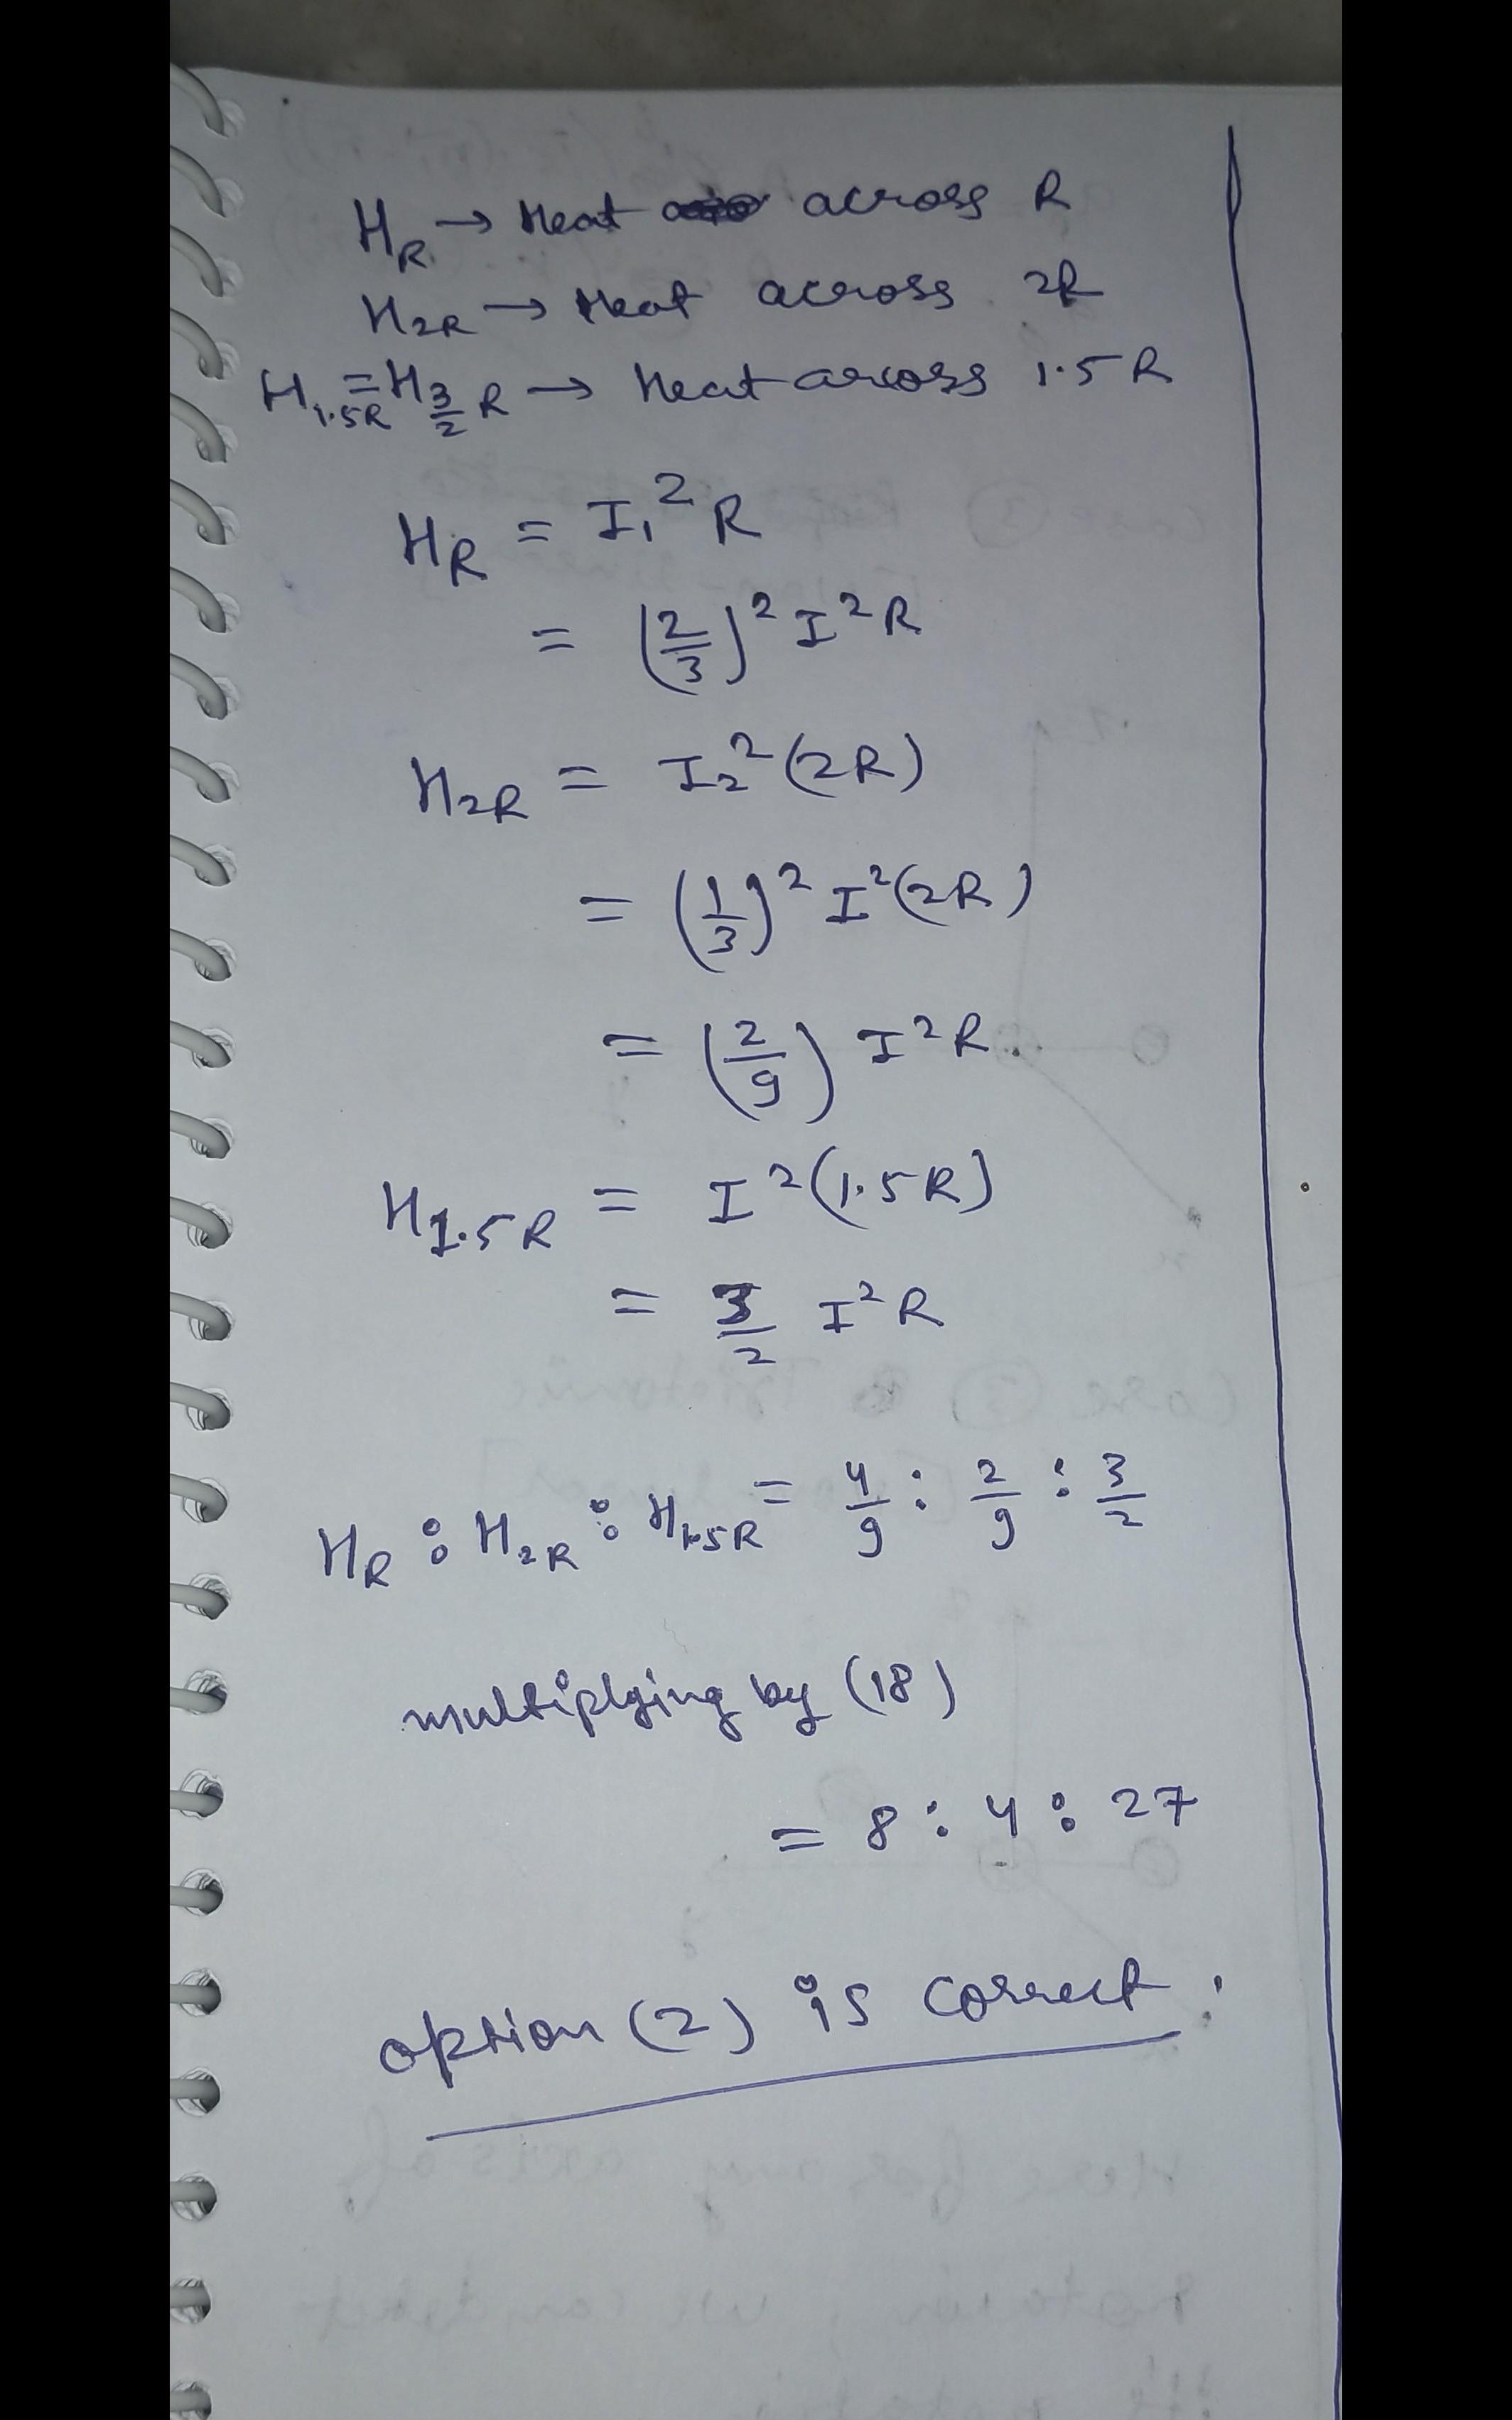 H_R → Heat across R
H_2R → Heat across 2R
H_1.5R = H_3/2 R → Heat across 1.5 R
H_R = I₁² R
= (2/3)² I² R
H_2R = I₂² (2R)
= (1/3)² I² (2R)
= (2/9) I² R.
H_1.5R = I² (1.5R)
= 3/2 I² R
H_R : H_2R : H_1.5R = 4/9 : 2/9 : 3/2
multiplying by (18)
= 8 : 4 : 27
option (2) is correct.